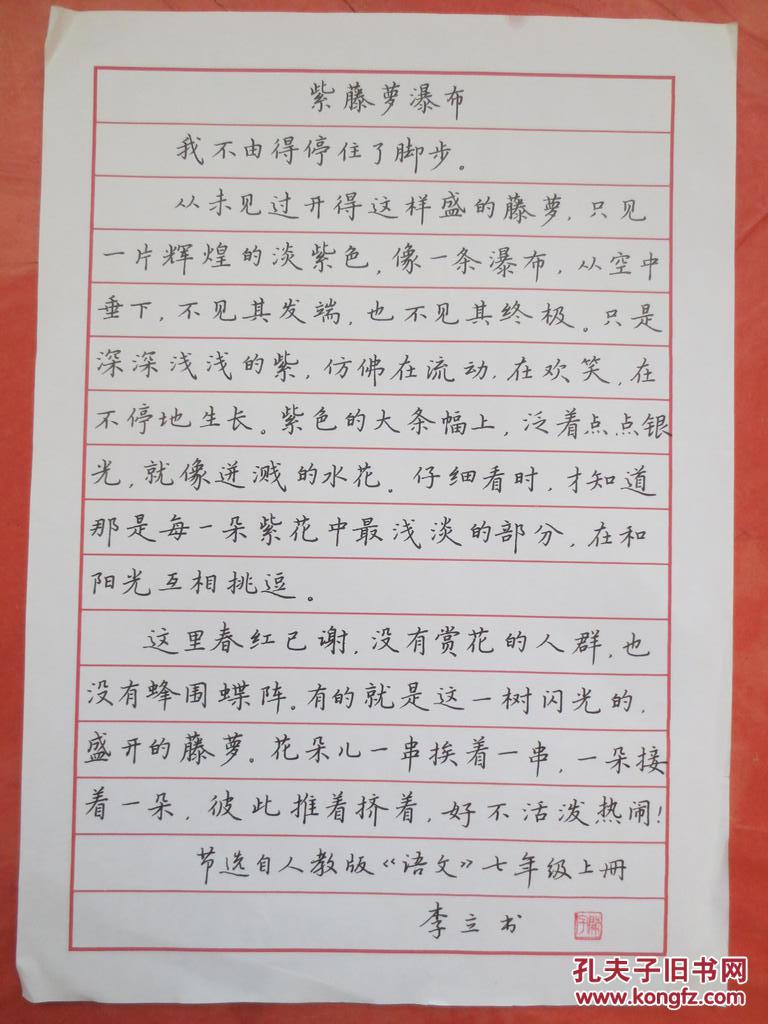 紫藤萝瀑布
我不由得停住了脚步。
从未见过开得这样盛的藤萝,只见
一片辉煌的淡紫色,像一条瀑布,从空中
垂下,不见其发端,也不见其终极。只是
深深浅浅的紫,仿佛在流动,在欢笑,在
不停地生长。紫色的大条幅上,泛着点点银
光,就像迸溅的水花。仔细看时,才知道
那是每一朵紫花中最浅淡的部分,在和
阳光互相挑逗。
这里春红已谢,没有赏花的人群,也
没有蜂围蝶阵。有的就是这一树闪光的,
盛开的藤萝。花朵儿一串挨着一串,一朵接
着一朵,彼此推着挤着,好不活泼热闹!
节选自人教版《语文》七年级上册
李立书
孔夫子旧书网
www.kongfz.com